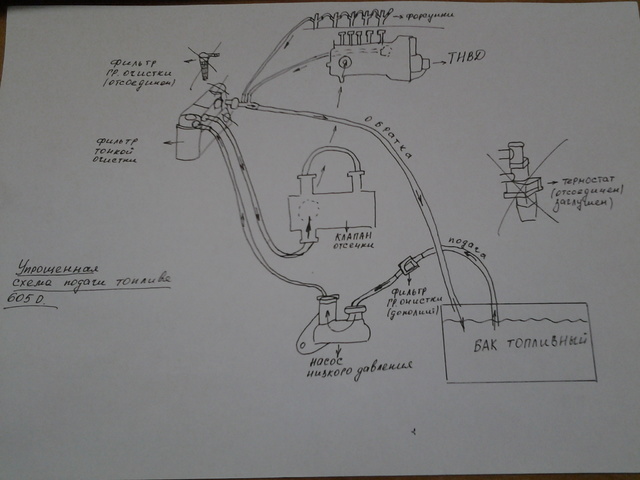 → форсунки
ТНВД
фильтр
гр. очистки
(отсоединен)
фильтр
тонкой
очистки
обратка
термостат
(отсоединен)
заглушен)
клапан
отсечки
подача
Упрощенная
схема подачи топлива
605 D.
фильтр
гр. очистки
насос
низкого давления
БАК ТОПЛИВНЫЙ